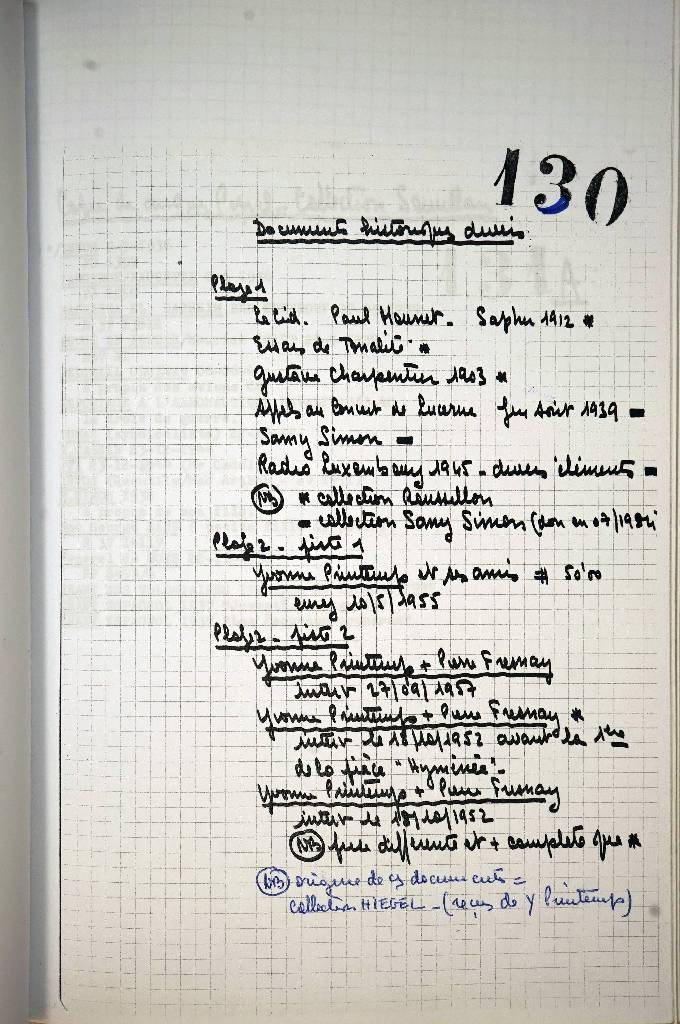 130
Documents historiques divers
Plage 1
Le Cid. Paul Mounet. Sapho 1912 *
Essais de Tonalité *
Gustave Charpentier 1903 *
Appels au Concert de Lucerne Août 1939 =
Samy Simon =
Radio Luxembourg 1945 - divers éléments =
NB * collection Roussillon
= collection Samy Simon (don en 07/1984)
Plage 2 - piste 1
Yvonne Printemps et ses amis # 50'00
enreg 10/5/1955
Plage 2 - piste 2
Yvonne Printemps + Pierre Fresnay
interv 27/09/1957
Yvonne Printemps + Pierre Fresnay *
interv le 18/10/1952 avant la 1ère
de la pièce "Hyminée" -
Yvonne Printemps + Pierre Fresnay
interv le 18/10/1952
NB prise différente et + complète que *
NB origine de ces documents =
collection HIEGEL - (reçus de Y Printemps)